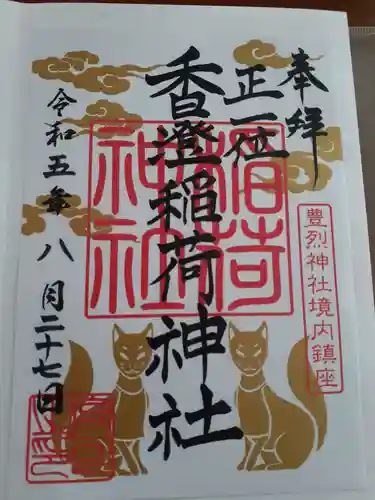 奉拝
正一位
香澄稲荷神社
令和五年八月二十七日
豊烈神社境内鎮座
稲荷
神社